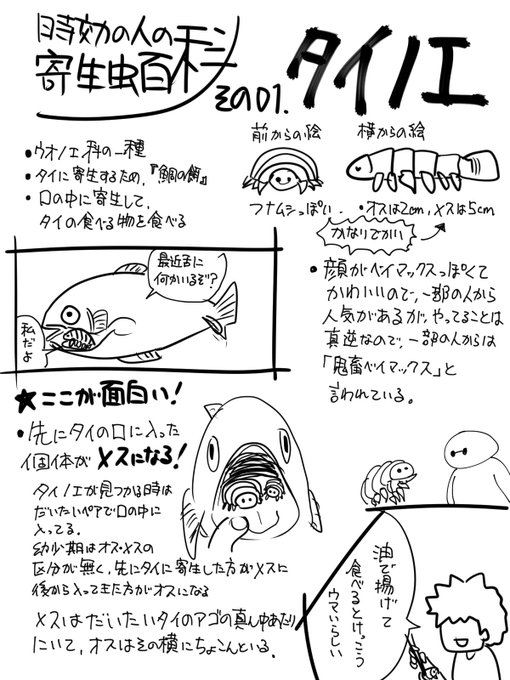 時効の人の
寄生虫百科
その01.
タイノエ
・ウオノエ科の一種
・タイに寄生するため、『鯛の餌』
・口の中に寄生して、
タイの食べる物を食べる
前からの絵
横からの絵
フナムシっぽい.
・オスは2cm,メスは5cm
かなりでかい
最近舌に
何かいるぞ?
私だよ
・顔がベイマックスっぽくて
かわいいので、一部の人から
人気があるが、やってることは
真逆なので、一部の人からは
「鬼畜ベイマックス」と
言われている。
★ここが面白い!
・先にタイの口に入った
個体がメスになる!
タイノエが見つかる時は
だいたいペアで口の中に
入ってる。
幼少期はオス・メスの
区分が無く、先にタイに寄生した方がメスに
後から入ってきた方がオスになる
メスはだいたいタイのアゴの真ん中あたり
にいて、オスはその横にちょこんといる。
油で揚げて
食べるとけっこう
ウマいらしい